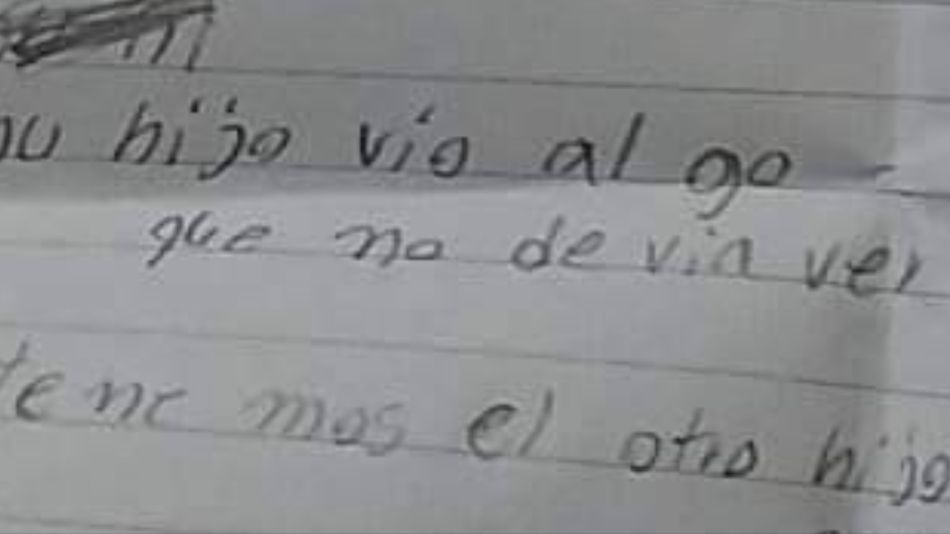 su hijo vio al go
que no de via ver
tene mos el otro hijo